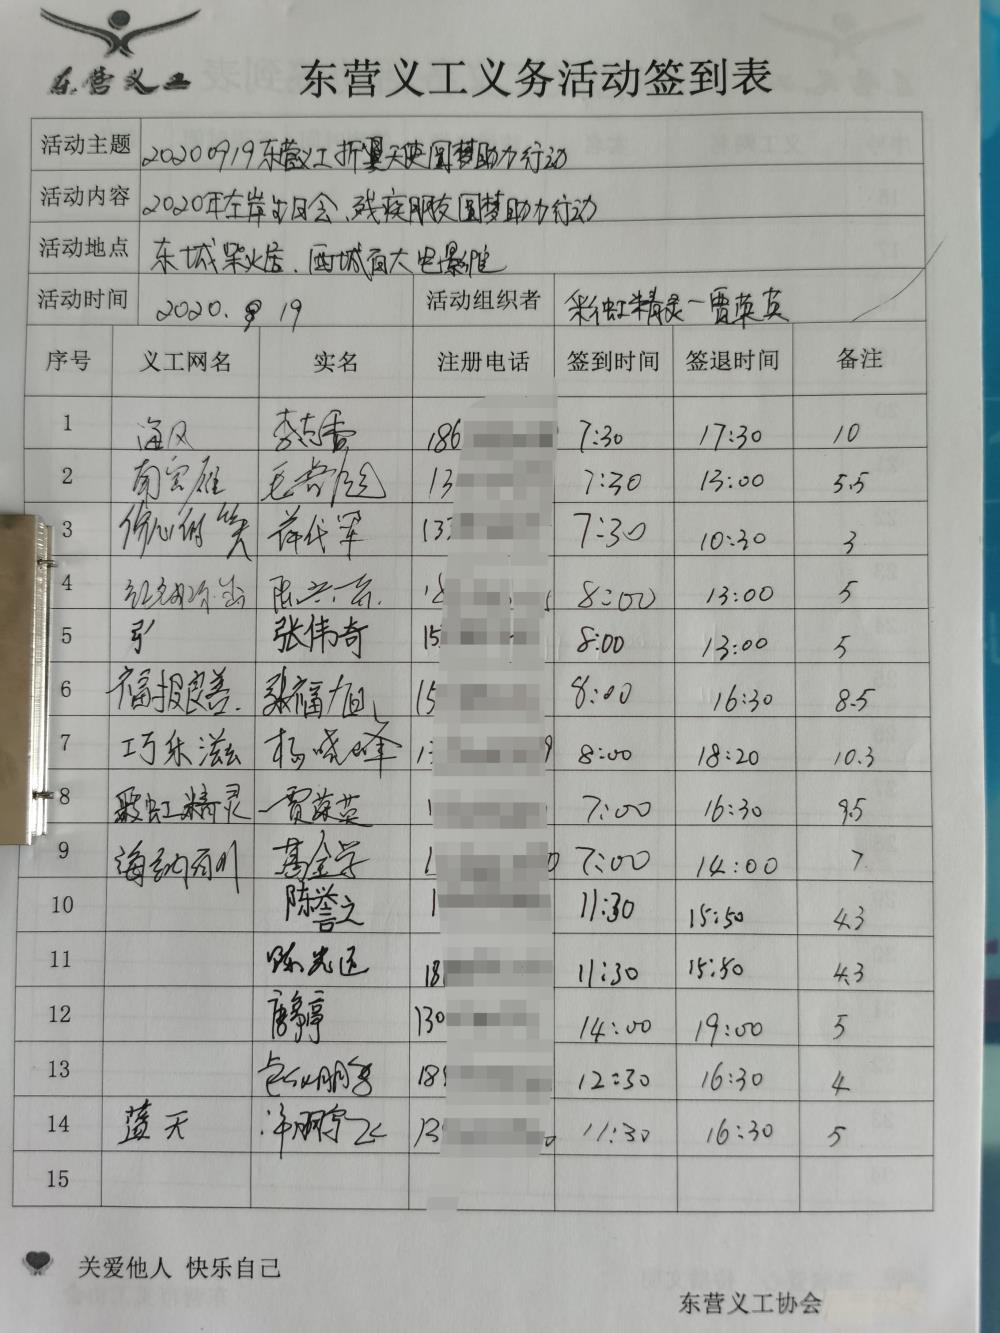 东营义工
东营义工义务活动签到表
活动主题 20200919东营义工折翼天使圆梦助力行动
活动内容 2020年左岸 会、残疾朋友圆梦助力行动
活动地点 东城柴火居、西城百大电影院
活动时间 2020.9 19 活动组织者 彩虹精灵-贾英英
序号 义工网名 实名 注册电话 签到时间 签退时间 备注
1 海风 李志雷 186 7:30 17:30 10
2 南宫雁 13 7:30 13:00 5.5
3 你心的笑 薛代军 133 7:30 10:30 3
4 18 8:00 13:00 5
5 张伟奇 15 8:00 13:00 5
6 福报良善. 张福旭 15 8:00 16:30 8.5
7 巧乐滋 杨晓峰 1 9 8:00 18:20 10.3
8 彩虹精灵 贾英英 1 7:00 16:30 9.5
9 海纳百川 葛金学 1 0 7:00 14:00 7
10 陈誉之 1 11:30 15:50 4.3
11 陈光远 18 11:30 15:50 4.3
12 唐婷婷 130 14:00 19:00 5
13 189 12:30 16:30 4
14 蓝天 13 11:30 16:30 5
15
关爱他人 快乐自己
东营义工协会